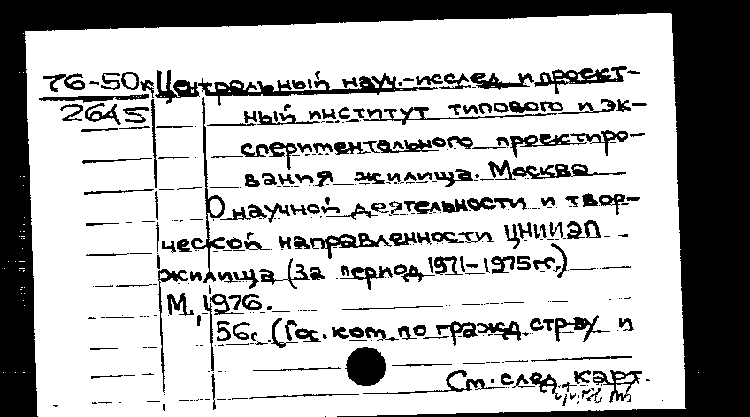 76-50к Центральный науч.-исслед. и проект-
2645 ный институт типового и эк-
спериментального проектиро-
вания жилища. Москва.
О научной деятельности и твор-
ческой направленности ЦНИИЭП
жилища (за период 1971-1975 гг.)
М., 1976.
56с. (Гос. ком. по гражд. стр-ву и
См. след. карт.